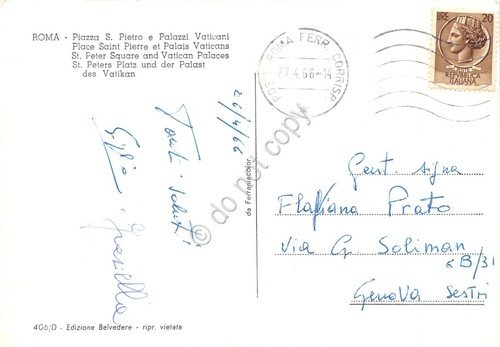 ROMA - Piazza S. Pietro e Palazzi Vaticani
Place Saint Pierre et Palais Vaticans
St. Peter Square and Vatican Palaces
St. Peters Platz und der Palast
des Vatikan
POSTE ROMA FERR. CORRISP.
27.4.66-14
LIRE 20
REPUBBLICA
ITALIANA
26/4/66
Tanti saluti
Graziella
do not copy
da Ferraniacolor
Gent. signa
Flaviana Prato
Via G. Soliman
6B/31
Genova Sestri
406/D - Edizione Belvedere - ripr. vietata